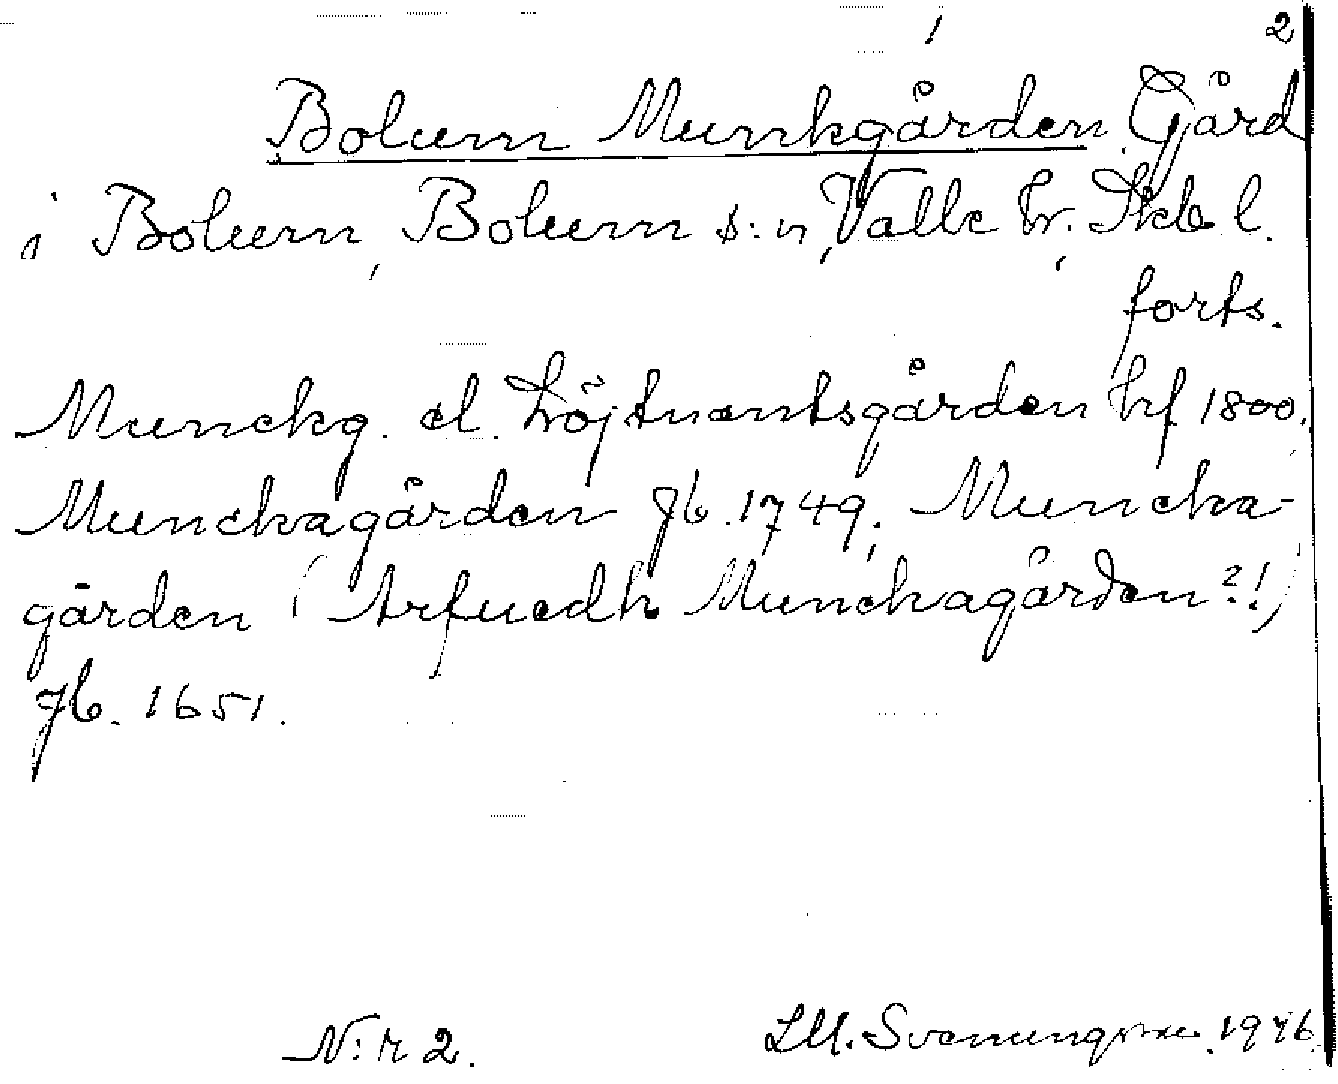 1 2
Bolum Munkgården Gård
i Bolum, Bolum s:n, Valle hr. Skb l.
forts.
Munckg. el. Löjtnantsgården hf 1800.
Munckagården jb. 1749; Muncka-
gården (Arfuedh Munckagården?!)
jb. 1651.
N:r 2. LM. Svenungsson. 1946.